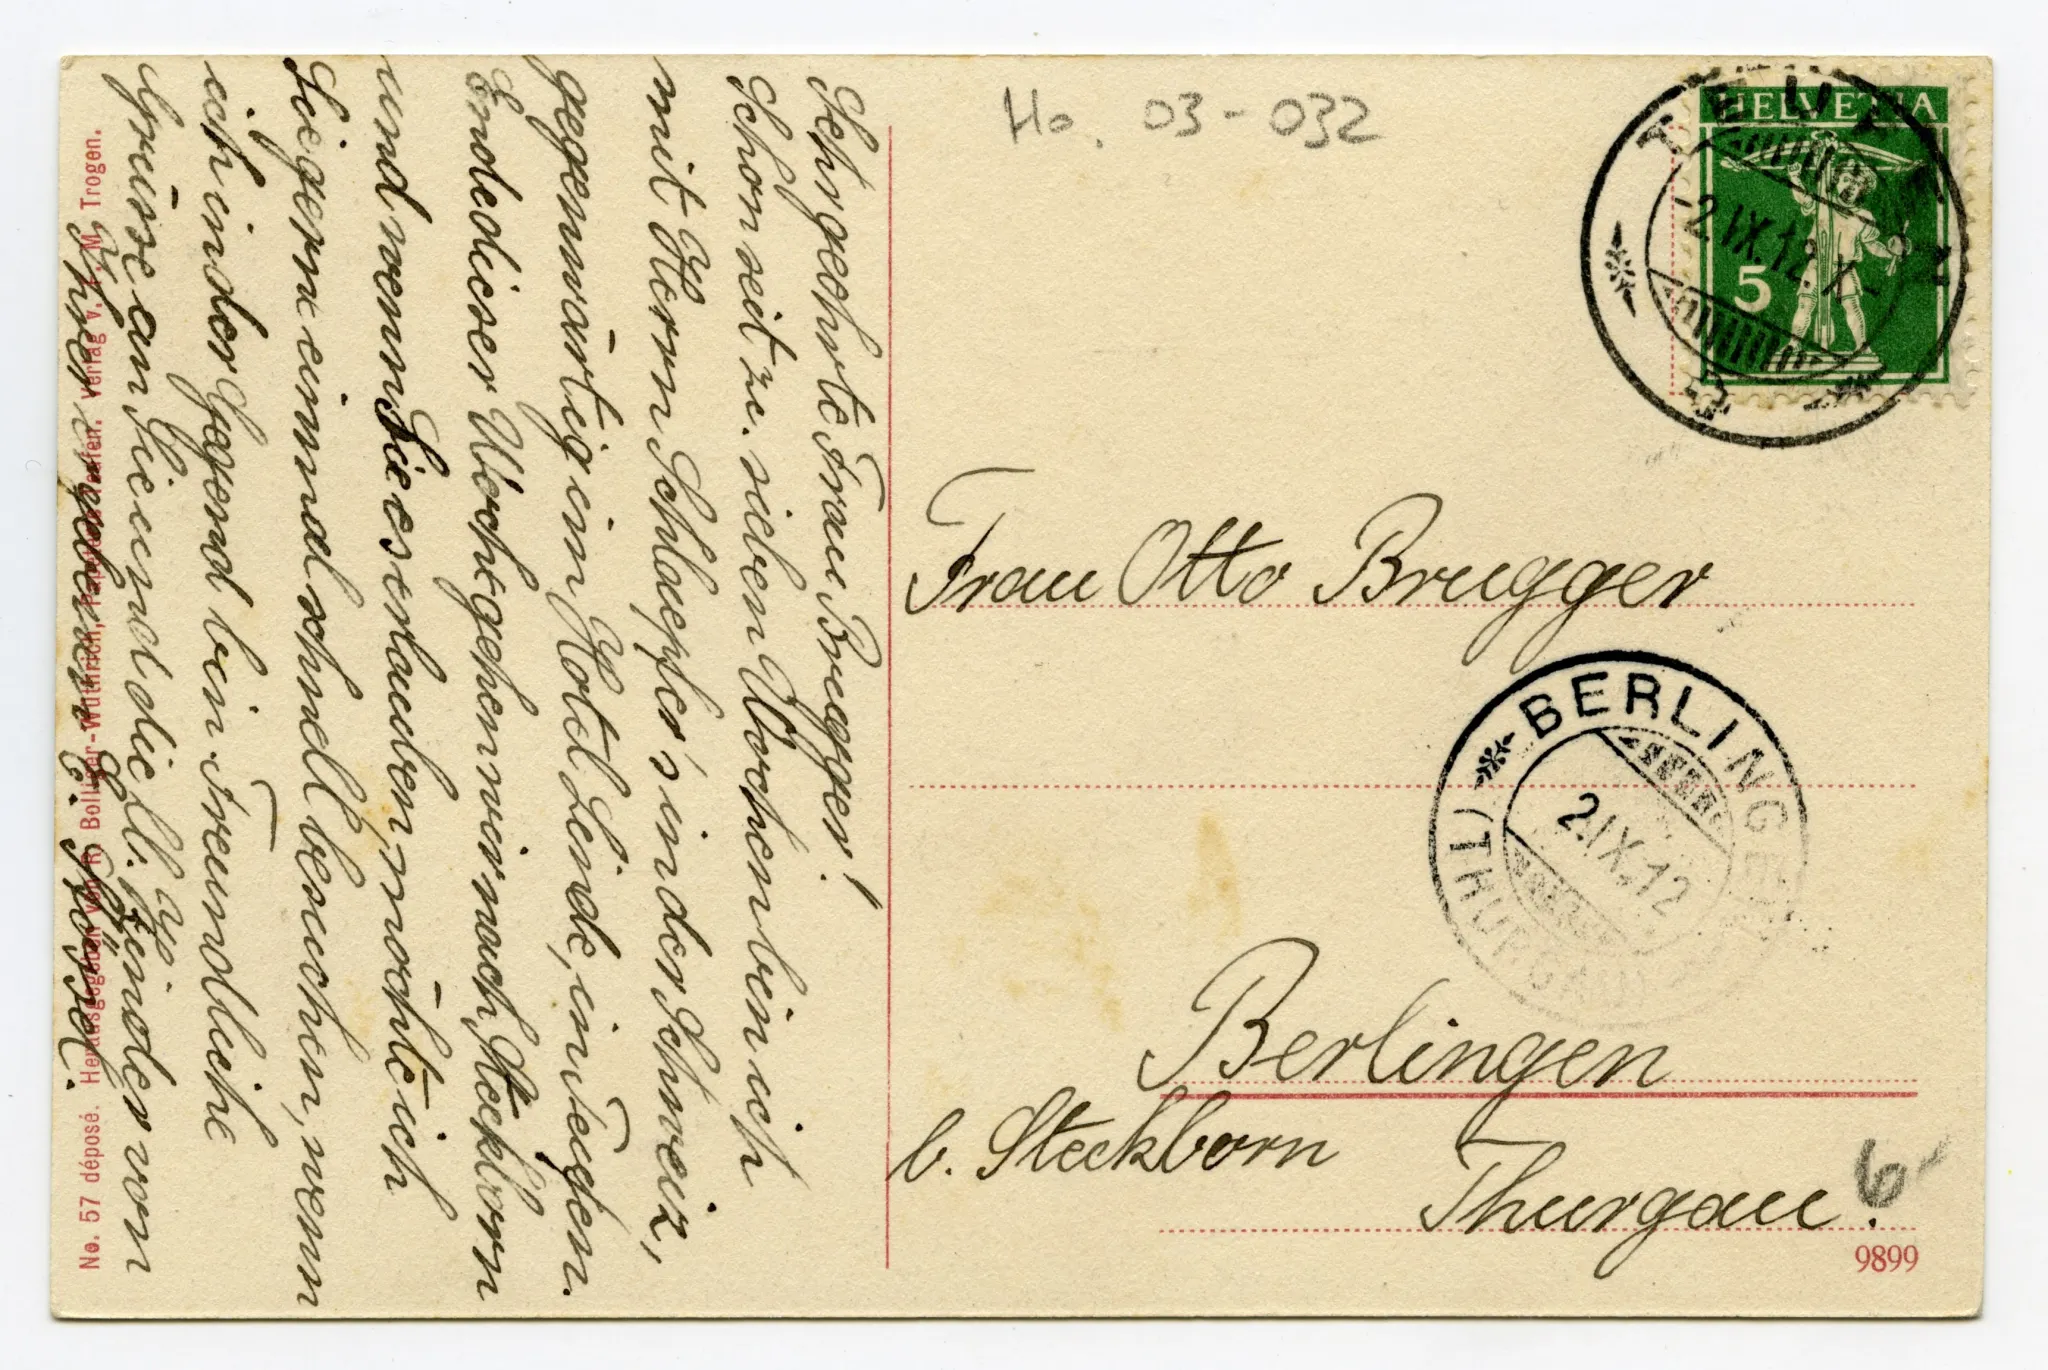 Sehr geehrte Frau Brugger!
Schon seit zc. sieben Wochen bin ich
mit Herrn Schlaepfer's in der Schweiz,
gegenwärtig im Hotel Linde, in Teufen.
Ende dieser Woche gehen wir nach Steckborn
und wenn Sie es erlauben, möchte ich
Sie gerne einmal schnell besuchen, wenn
ich in der Gegend bin. Freundliche
Grüsse an Sie und die lb. Kinder von
Ihrer ergebenen E.
No. 57 déposé. Herausgegeben von R. Bolliger-Wüthrich, Papeterie, Teufen. Verlag v. F. M. Trogen.
Ho. 03-032
HELVETIA
5
TEUFEN
-2.IX.12.X-
Frau Otto Brugger
BERLINGEN
(THURGAU)
2.IX.12
Berlingen
b. Steckborn
Thurgau.
6-
9899